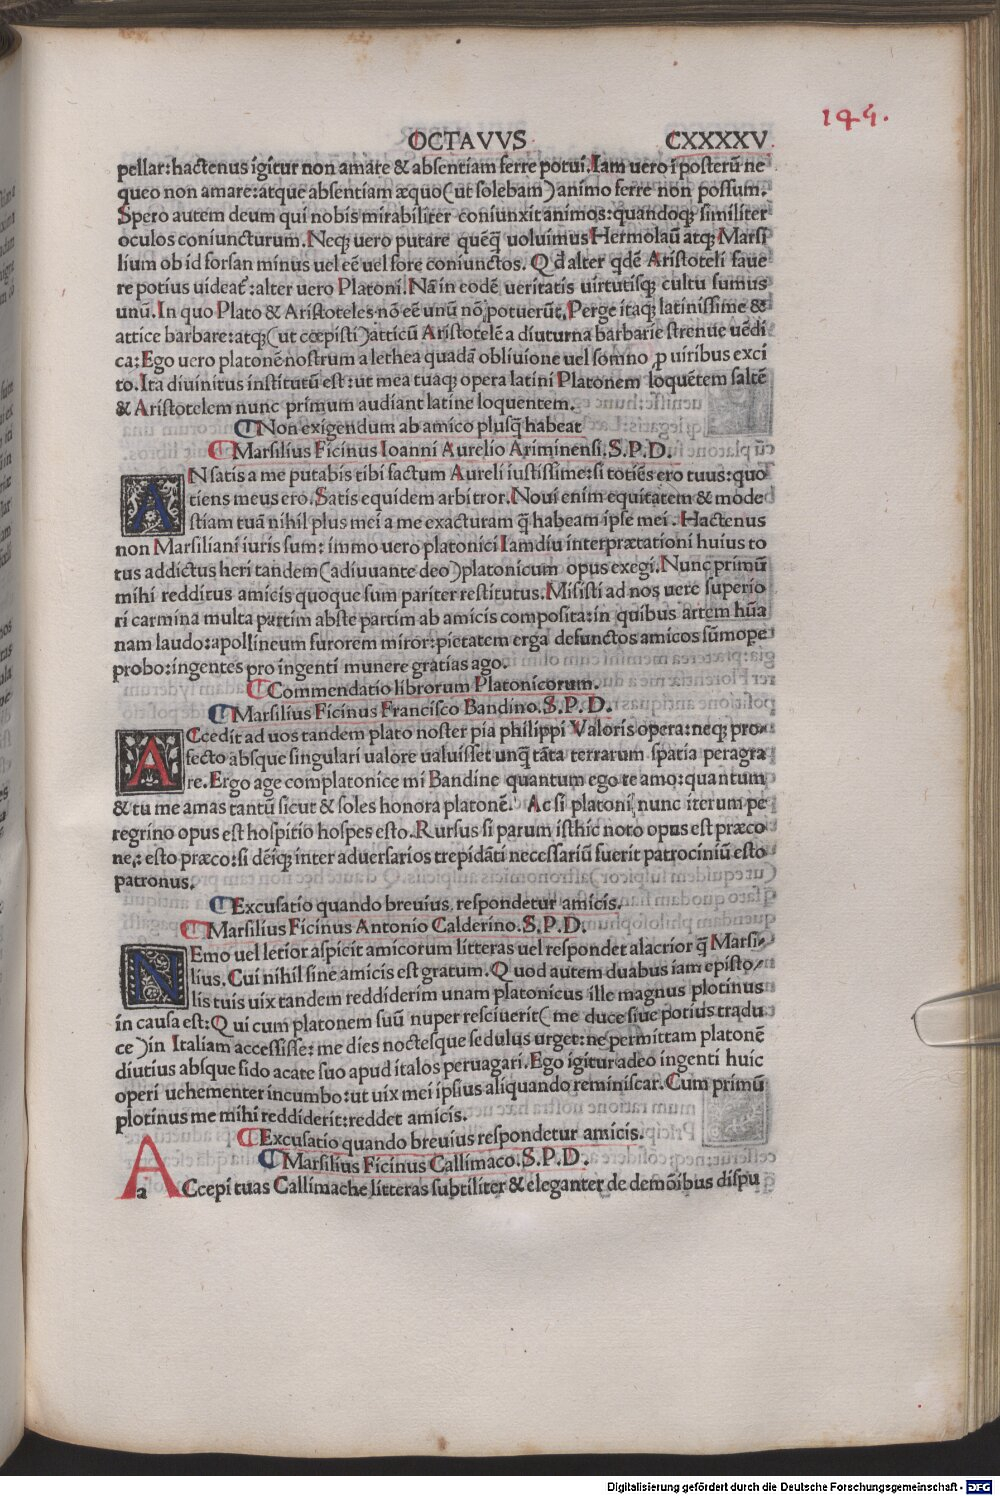 144.
OCTAVVS CXXXXV
pellar: hactenus igitur non amare & absentiam ferre potui. Iam uero ĩposterũ ne
queo non amare: atque absentiam æquo (ut solebam) animo ferre non possum.
Spero autem deum qui nobis mirabiliter coniunxit animos: quandoqꝫ similiter
oculos coniuncturum. Neqꝫ uero putare quẽq̃ uoluimus Hermolaũ atqꝫ Marsi
lium ob id forsan minus uel eẽ uel fore coniunctos. Q d̃ alter qdẽ Aristoteli faue
re potius uideat̃: alter uero Platoni. Nã in eodẽ ueritatis uirtutisqꝫ cultu sumus
unũ. In quo Plato & Aristoteles nõ eẽ unũ nõ potuerũt. Perge itaqꝫ latinissime &
attice barbare: atqꝫ (ut cœpisti) atticũ Aristotelẽ a diuturna barbarie strenue uẽdi
ca: Ego uero platonẽ nostrum a lethea quadã obliuione uel somno ꝓ uiribus exci
to. Ita diuinitus institutũ est: ut mea tuaqꝫ opera latini Platonem loquẽtem saltẽ
& Aristotelem nunc primum audiant latine loquentem.
¶ Non exigendum ab amico plusq̃ habeat
¶ Marsilius Ficinus Ioanni Aurelio Ariminensi. S.P.D.
AN satis a me putabis tibi factum Aureli iustissime: si totiẽs ero tuus: quo
tiens meus ero. Satis equidem arbitror. Noui enim equitatem & mode
stiam tuã nihil plus mei a me exacturam q̃ habeam ipse mei. Hactenus
non Marsiliani iuris sum: immo uero platonici Iamdiu interprætationi huius to
tus addictus heri tandem (adiuuante deo) platonicum opus exegi. Nunc primũ
mihi redditus amicis quoque sum pariter restitutus. Misisti ad nos uere superio
ri carmina multa partim abste partim ab amicis composita: in quibus artem hũa
nam laudo: apollineum furorem miror: pietatem erga defunctos amicos sũmope
probo: ingentes pro ingenti munere gratias ago.
¶ Commendatio librorum Platonicorum.
¶ Marsilius Ficinus Francisco Bandino. S.P.D.
ACcedit ad uos tandem plato noster pia philippi Valoris opera: neqꝫ pro-
fecto absque singulari ualore ualuisset unq̃ tãta terrarum spatia peragra
re. Ergo age complatonice mi Bandine quantum ego te amo: quantum
& tu me amas tantũ sicut & soles honora platonẽ. Ac si platoni nunc iterum pe
regrino opus est hospitio hospes esto. Rursus si parum isthic noto opus est præco
ne: esto præco: si dẽiqꝫ inter aduersarios trepidãti necessariũ fuerit patrociniũ esto
patronus.
¶ Excusatio quando breuius respondetur amicis.
¶ Marsilius Ficinus Antonio Calderino. S.P.D.
NEmo uel letior aspicit amicorum litteras uel respondet alacrior q̃ Marsi-
lius. Cui nihil sine amicis est gratum. Quod autem duabus iam episto-
lis tuis uix tandem reddiderim unam platonicus ille magnus plotinus
in causa est: Qui cum platonem suũ nuper resciuerit (me duce siue potius tradu
ce) in Italiam accessisse: me dies noctesque sedulus urget: ne permittam platonẽ
diutius absque fido acate suo apud italos peruagari. Ego igitur adeo ingenti huic
operi uehementer incumbo: ut uix mei ipsius aliquando reminiscar. Cum primũ
plotinus me mihi reddiderit: reddet amicis.
¶ Excusatio quando breuius respondetur amicis.
¶ Marsilius Ficinus Callimaco. S.P.D.
ACcepi tuas Callimache litteras subtiliter & eleganter de demõibus dispu
Digitalisierung gefördert durch die Deutsche Forschungsgemeinschaft - DFG